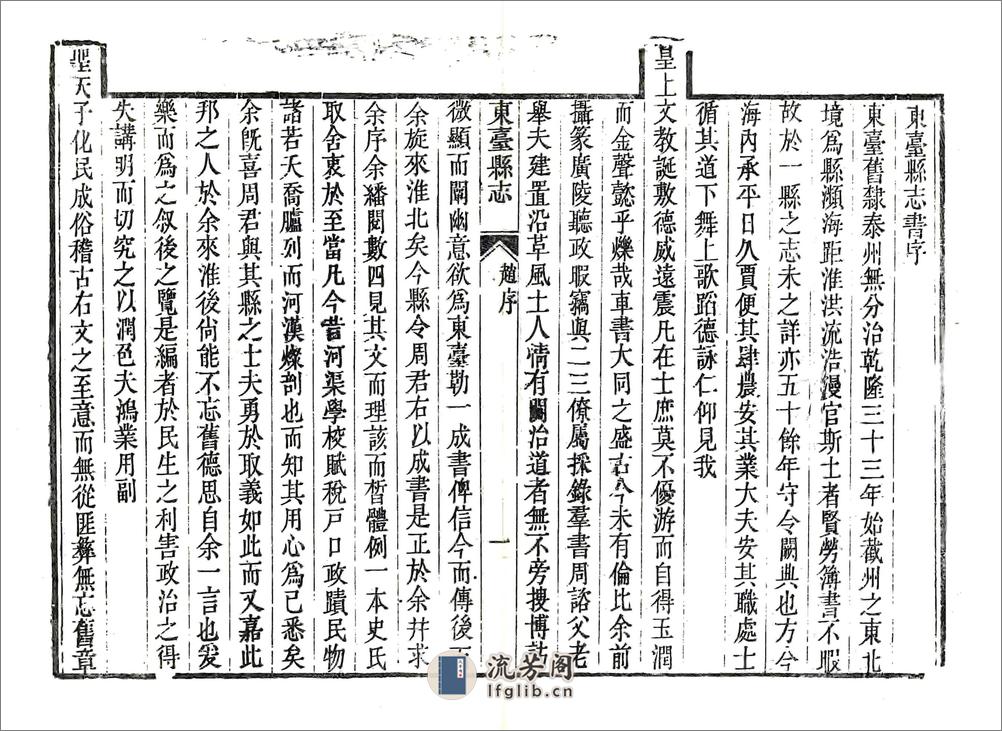 東臺縣志書序
東臺舊隸泰州無分治乾隆三十三年始截州之東北
境爲縣瀕海距淮洪流浩漫官斯土者賢勞簿書不暇
故於一縣之志未之詳亦五十餘年守令闕典也方今
海內承平日久賈便其肆農安其業大夫安其職處士
循其道下舞上歌蹈德詠仁仰見我
皇上文教誕敷德威遠震凡在士庶莫不優游而自得玉潤
而金聲懿乎爍哉車書大同之盛古今未有倫比余前
攝篆廣陵聽政暇竊與二三僚屬採錄羣書周諮父老
舉夫建置沿革風土人情有關治道者無不旁搜博訪
東臺縣志
趙序
一
微顯而闡幽意欲爲東臺勒一成書俾信今而傳後
余旋來淮北矣今縣令周君右以成書是正於余幷求
余序余繙閱數四見其文而理該而晳體例一本史氏
取舍衷於至當凡今昔河渠學校賦稅戶口政蹟民物
諸若天喬臚列而河漢燦剖也而知其用心爲已悉矣
余旣喜周君與其縣之士夫勇於取義如此而又嘉此
邦之人於余來淮後尙能不忘舊德思自余一言也爰
樂而爲之叙後之覽是編者於民生之利害政治之得
失講明而切究之以潤色夫鴻業用副
聖天子化民成俗稽古右文之至意而無從匪彝無忘舊章
流芳阁
lfglib.cn